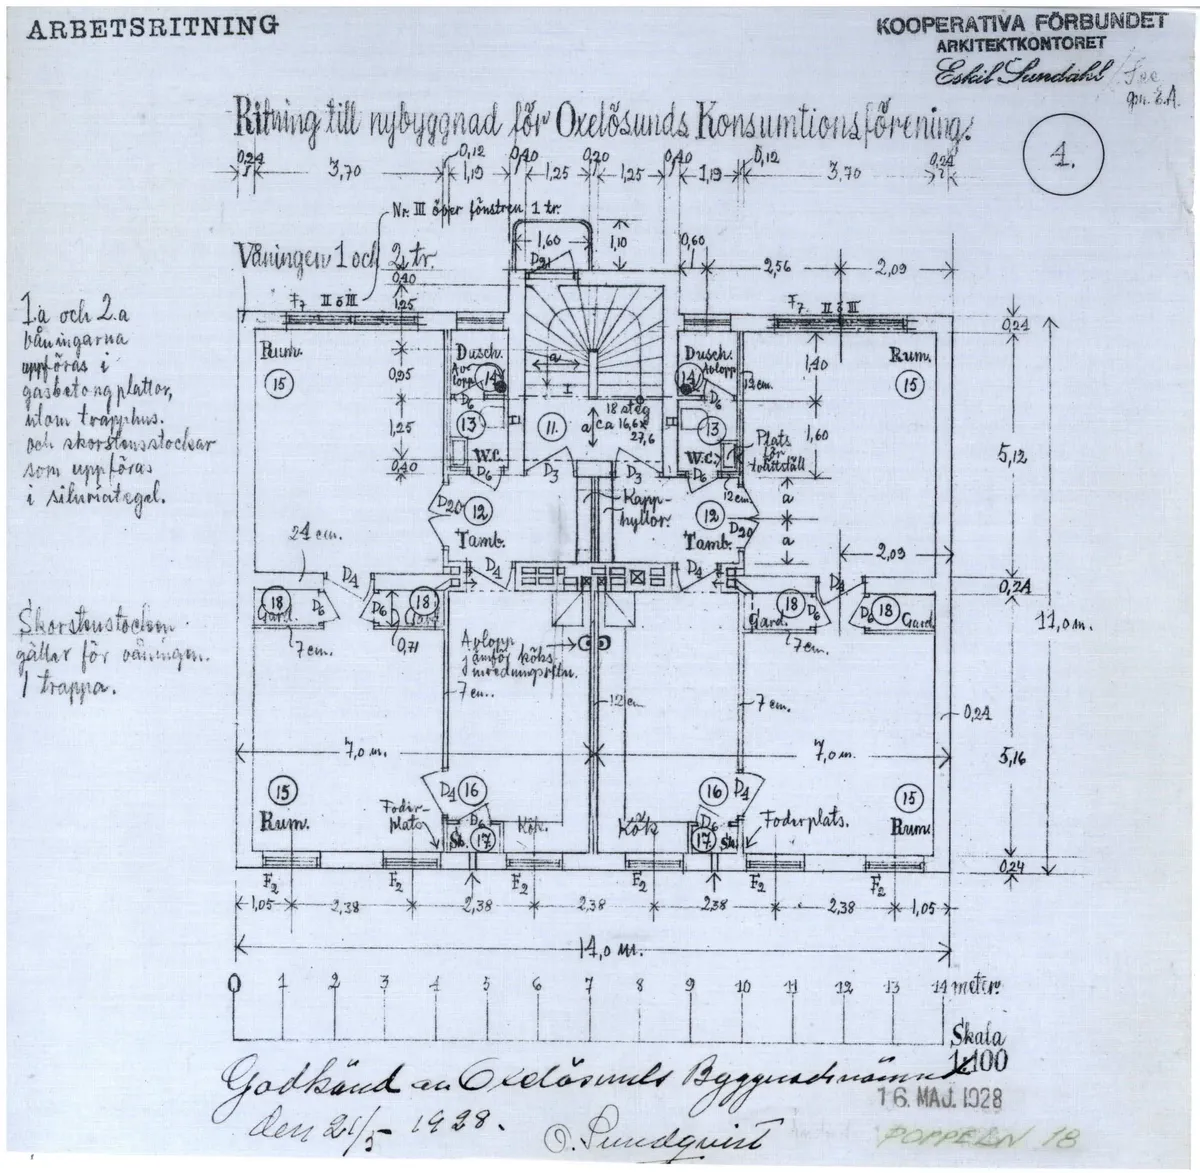 ARBETSRITNING
KOOPERATIVA FÖRBUNDET
ARKITEKTKONTORET
Eskil Sundahl
gm. E.A.
Ritning till nybyggnad för Oxelösunds Konsumtionsförening.
1.
0,24 3,70 0,12 1,19 0,40 1,25 0,20 1,25 0,40 1,19 0,12 3,70 0,24
Nr. III över fönstren 1 tr.
Våningen 1 och 2 tr.
1,60 1,10 0,60
D21
2,56 2,09
0,40
1,25
F7 II o III
F7 II o III
0,24
1.a och 2.a
våningarna
uppföras i
gasbetongplattor,
utom trapphus
och skorstensstockar
som uppföras
i silumategel.
Rum.
15
Dusch.
Avlopp
14
D6
a
I
Dusch.
Avlopp
14
D6
12 cm.
1,40
Rum.
15
0,95
1,25
0,40
13
W.C.
D6
11.
a
18 steg
ca 16,6x
27,6
13
W.C.
D6
Plats
för
tvättställ
1,60
5,12
D3 D3
D20
12
Tamb.
Kapp-
hyllor.
12
Tamb.
D20
12 cm.
a
a
24 cm.
2,09
D4 D4 D4 D4
0,24
18
Gard.
D6 D6
18
Gard.
7 cm.
0,71
18
Gard.
D6 D6
18
Gard.
7 cm.
11,0 m.
Skorstenstocken
gäller för våningen
1 trappa.
Avlopp
jämför köks-
inredningsritn.
7 cm.
12 cm
7 cm.
0,24
7,0 m.
7,0 m.
5,16
15
Rum.
D4
16
D6
Foder-
plats
Sk.
17
Kök.
Kök
16
D4
D6
17
Sk.
Foderplats.
15
Rum.
0,24
F2 F2 F2 F2 F2 F2
1,05 2,38 2,38 2,38 2,38 2,38 1,05
14,0 m.
0 1 2 3 4 5 6 7 8 9 10 11 12 13 14 meter.
Skala
1:100
Godkänd av Oxelösunds Byggnadsnämnd
den 21/5 1928.
16. MAJ. 1928
O. Sundqvist
POPPELN 18